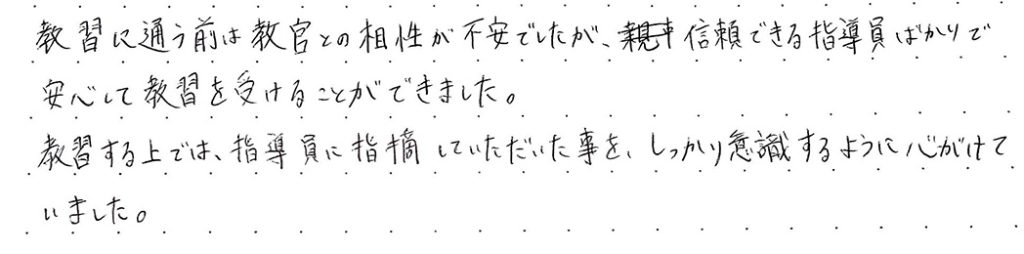 教習に通う前は教官との相性が不安でしたが、信頼できる指導員ばかりで
安心して教習を受けることができました。
教習する上では、指導員に指摘していただいた事を、しっかり意識するように心がけて
いました。